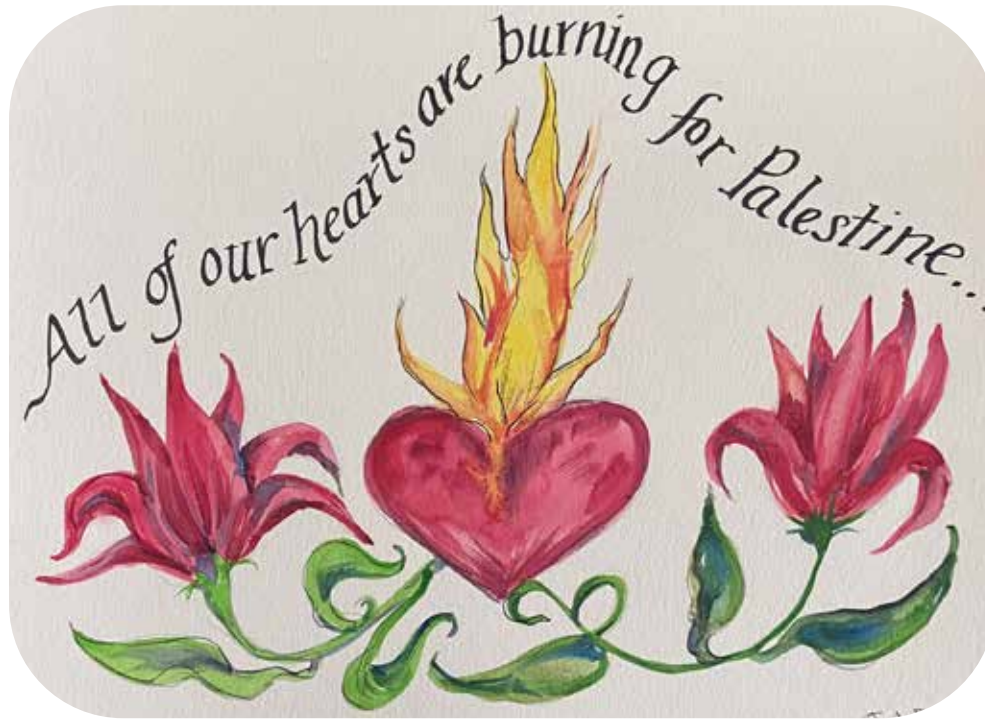 All of our hearts are burning for Palestine...